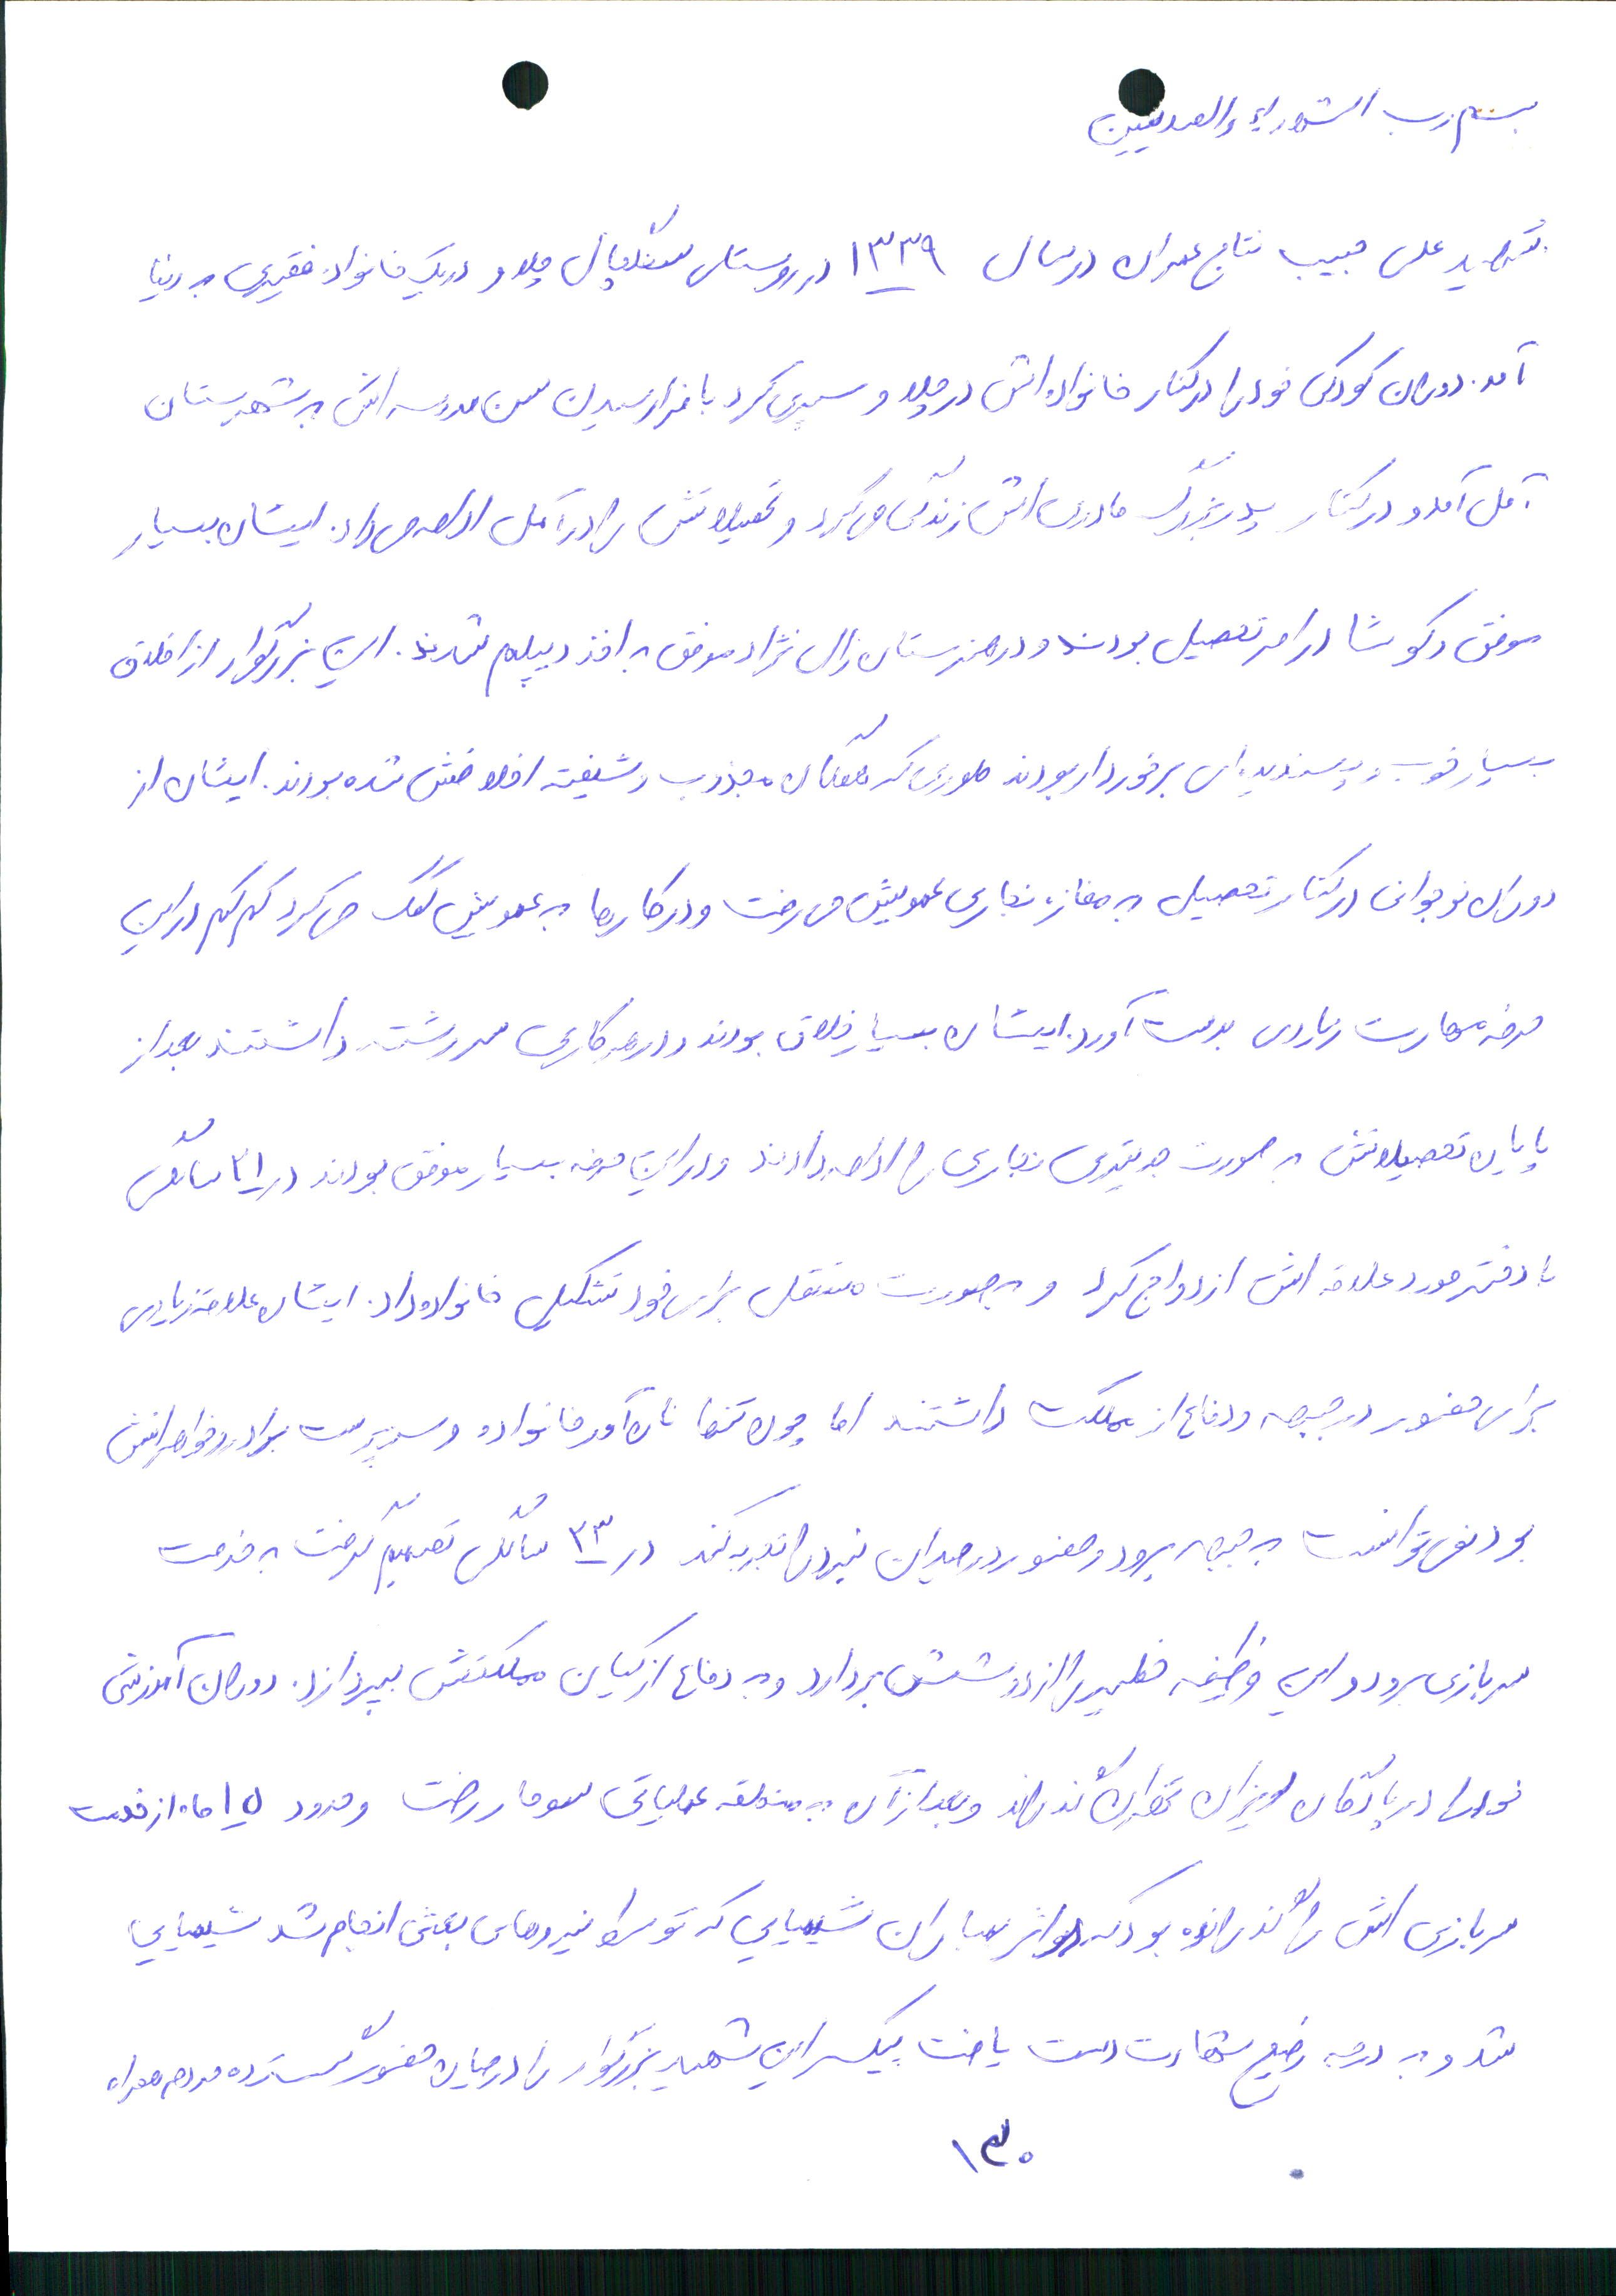 بسم رب الشهداء والصدیقین
شهید علی حبیب نتاج عمران در سال ۱۳۳۹ در روستای سنگچال چلاو و در یک خانواده فقیری به دنیا
آمد. دوران کودکی خود را در کنار خانواده اش در چلاو سپری کرد با فرا رسیدن سن مدرسه اش به شهرستان
آمل آمد و در کنار پدربزرگ مادری اش زندگی می کرد و تحصیلاتش را در آمل ادامه می داد. ایشان بسیار
موفق و کوشا در امر تحصیل بودند و در هنرستان زال نژاد موفق به اخذ دیپلم شدند. این بزرگوار از اخلاق
بسیار خوب و پسندیده ای برخوردار بودند طوری که همگان مجذوب و شیفته اخلاقش شده بودند. ایشان از
دوران نوجوانی در کنار تحصیل به مغازه نجاری عمویش می رفت و در کارها به عمویش کمک می کرد کم کم در این
حرفه مهارت زیادی بدست آورد. ایشان بسیار خلاق بودند و در هر کاری سررشته داشتند بعد از
پایان تحصیلاتش به صورت جدیتری نجاری را ادامه دادند و در این حرفه بسیار موفق بودند در ۲۱ سالگی
با دختر مورد علاقه اش ازدواج کرد و به صورت مستقل برای خود تشکیل خانواده داد. ایشان علاقه زیادی
برای حضور در جبهه و دفاع از مملکت داشتند اما چون تنها نان آور خانواده و سرپرست برادر و خواهرانش
بود نمی توانست به جبهه برود و حضور در میدان نبرد را تجربه کند در ۲۳ سالگی تصمیم گرفت به خدمت
سربازی برود و این وظیفه خطیر را از دوشش بردارد و به دفاع از کیان مملکتش بپردازد. دوران آموزشی
خود را در پادگان تهران گذراند و بعد از آن به منطقه عملیاتی سومار رفت و حدود ۱۵ ماه از خدمت
سربازی اش را گذرانده بود که در اثر بمباران شیمیایی که توسط نیروهای بعثی انجام شد شیمیایی
شد و به درجه رفیع شهادت دست یافت پیکر این شهید بزرگوار را در میان حضور گسترده مردم همراه
۱۳۰